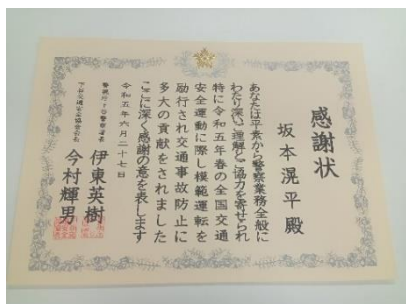 感謝状
坂本滉平殿
あなたは平素から警察業務全般に
わたり深いご理解とご協力を寄せられ
特に令和五年春の全国交通
安全運動に際し模範運転を
励行され交通事故防止に
多大の貢献をされました
ここに深く感謝の意を表します
令和五年六月二十七日
伊東英樹
交通安全協会会長
今村輝男